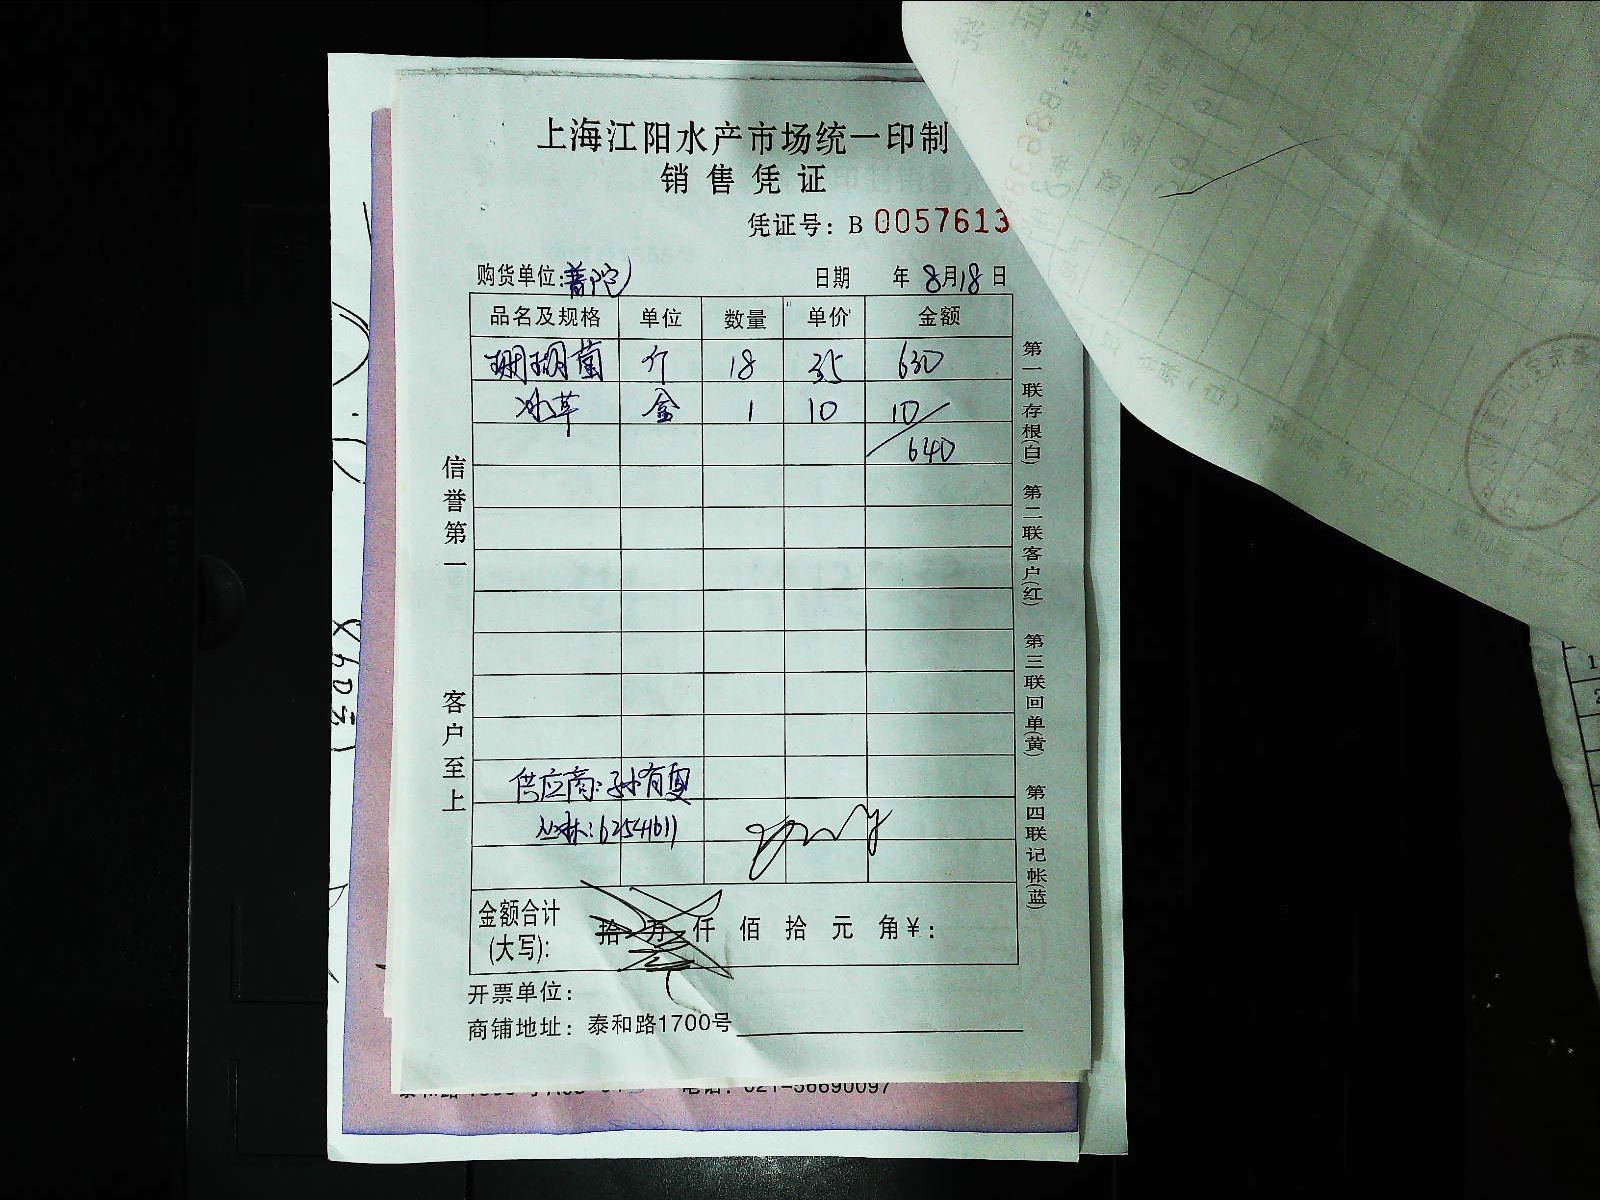 上海江阳水产市场统一印制
销售凭证
凭证号：B 0057613
购货单位:普陀
日期 年8月18日
品名及规格 单位 数量 单价 金额
珊瑚菌 斤 18 35 630
冰草 盒 1 10 10
640
信誉第一 客户至上
第一联存根(白) 第二联客户(红) 第三联回单(黄) 第四联记帐(蓝)
供应商:孙有更
丛林:62541611
金额合计
(大写): 拾 万 仟 佰 拾 元 角￥:
开票单位：
商铺地址：泰和路1700号
电话：021-56690097